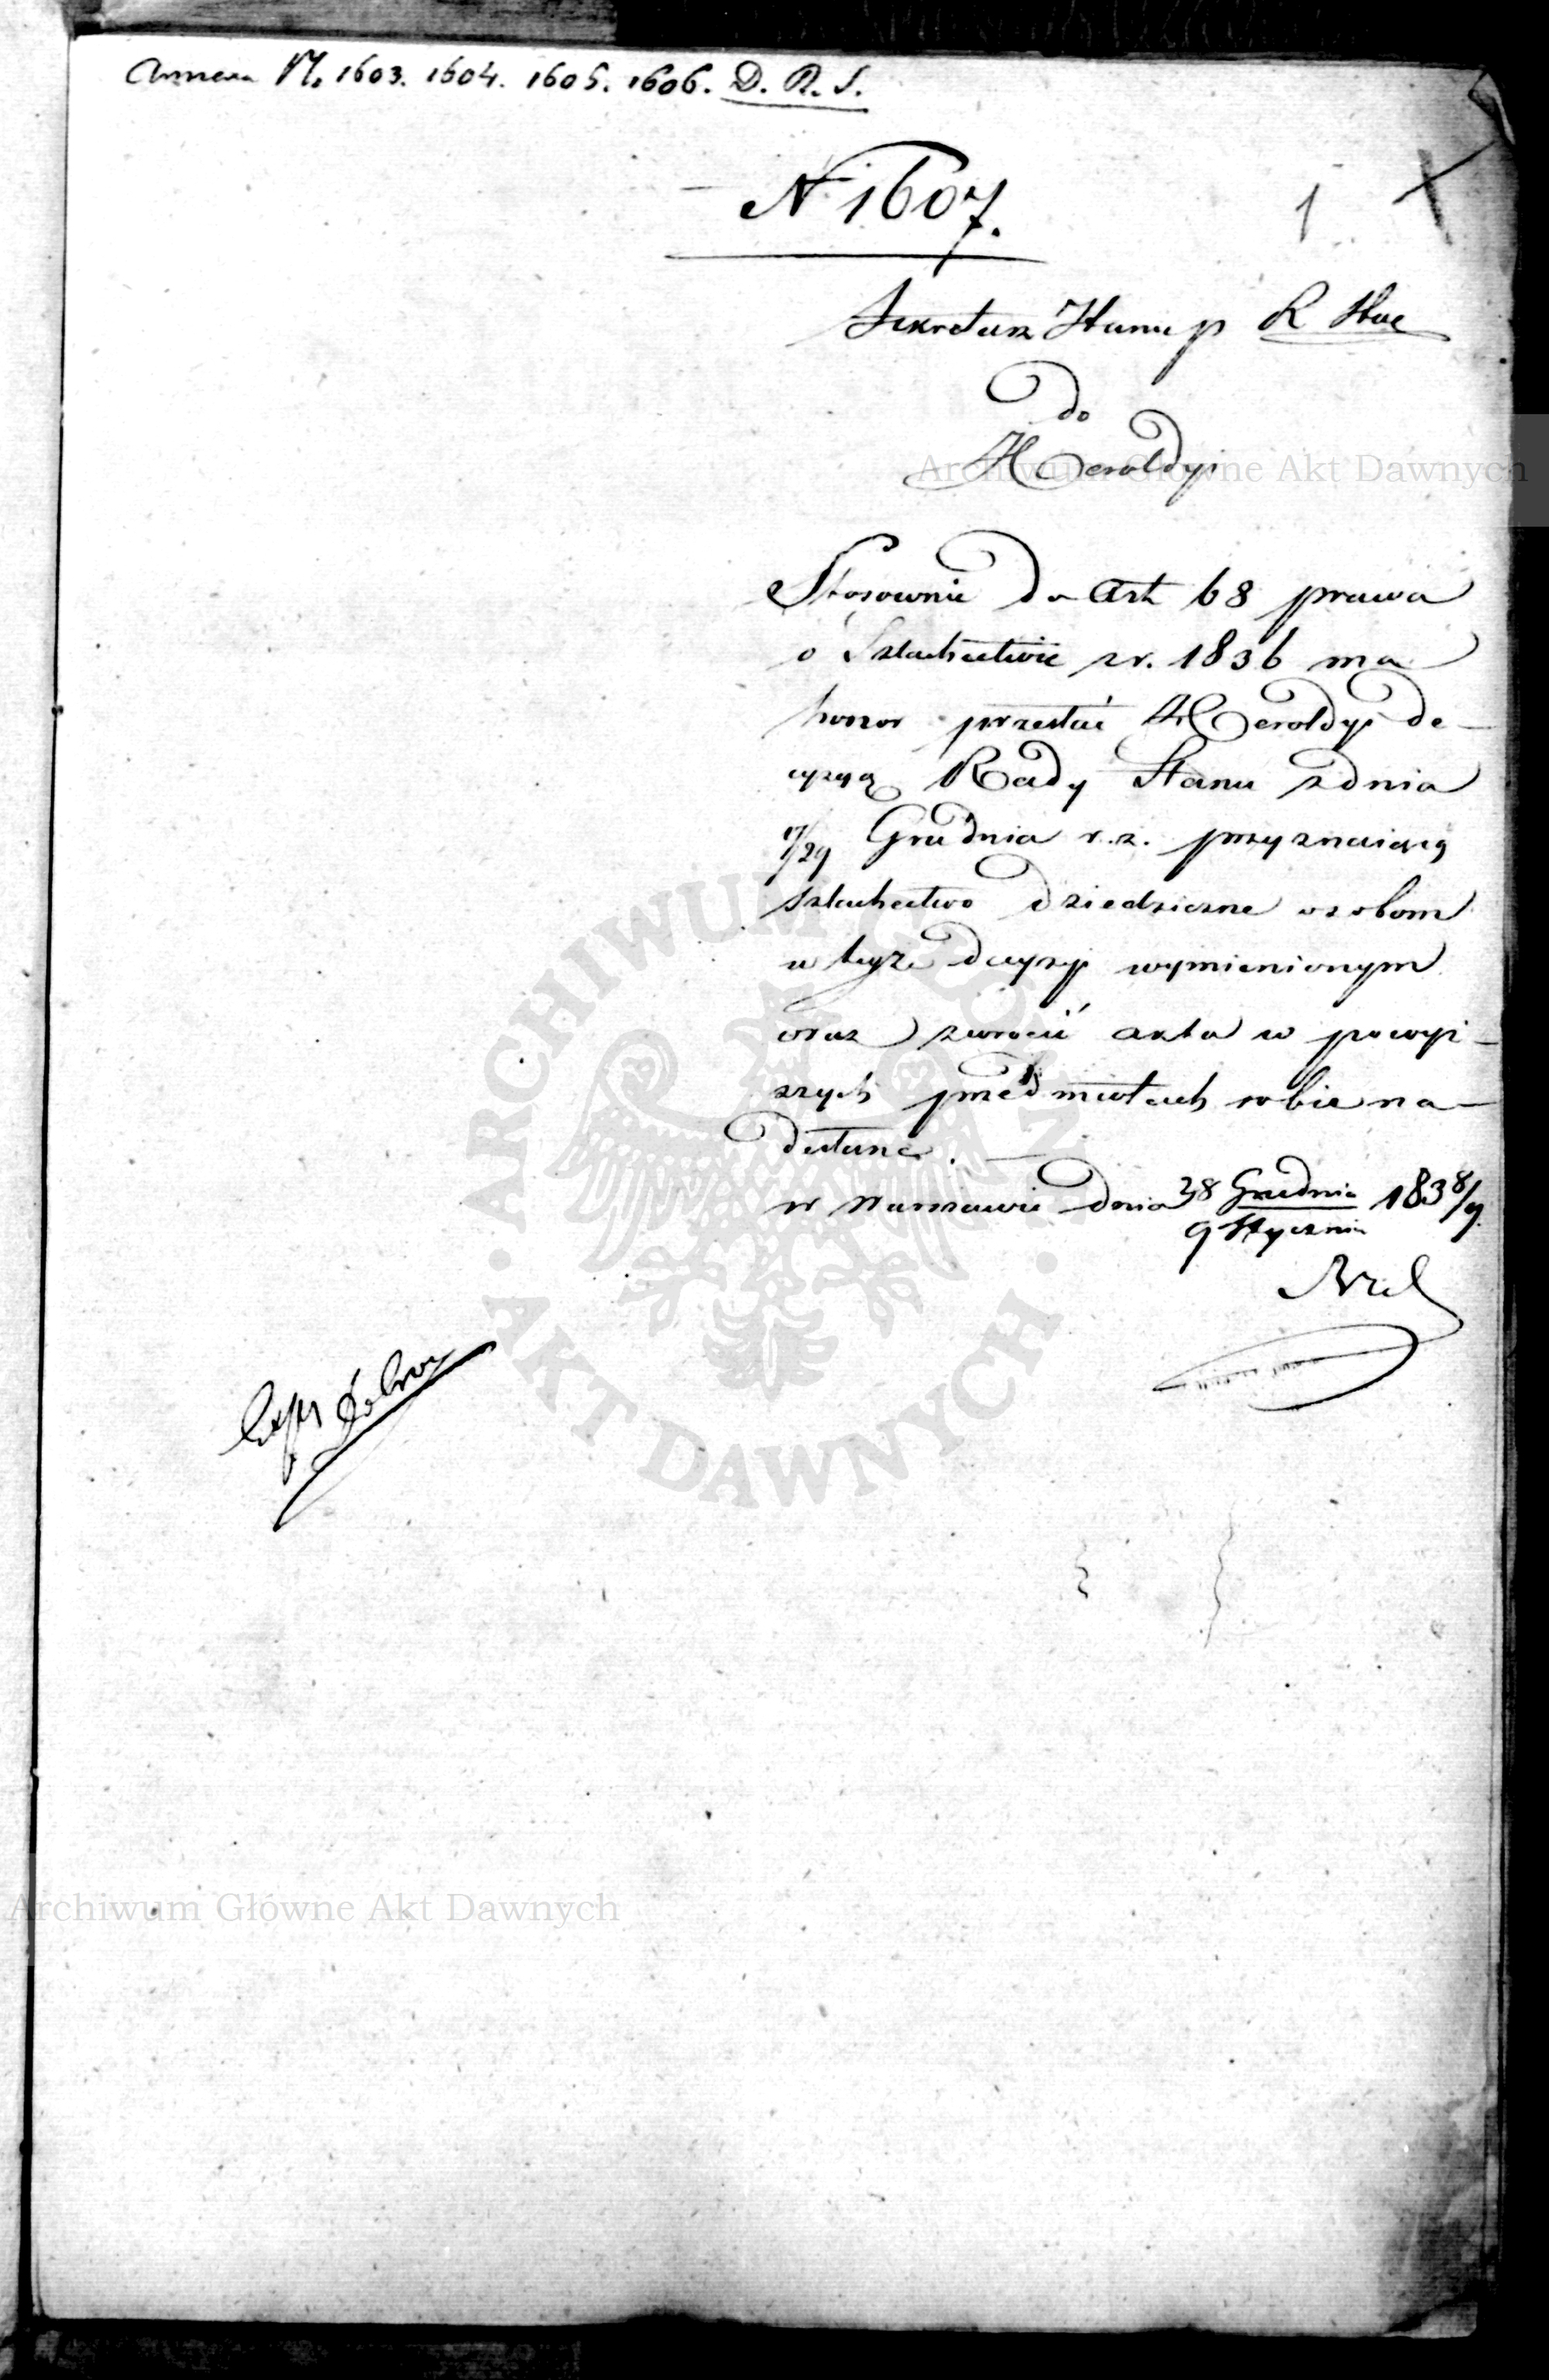 Annexa N. 1603. 1604. 1605. 1606. D. R. S.
N 1607.
1
Sekretarz Stanu p R Stue
do
Heroldyi
Archiwum Główne Akt Dawnych
Stosownie do Art 68 prawa
o Szlachectwie z r. 1836 ma
honor przesłać Heroldyi de-
cyzyą Rady Stanu z dnia
17/29 Grudnia r. z. przyznaiącą
szlachectwo dziedziczne osobom
w teyże decyzyi wymienionym
oraz zwrócić akta w powyż-
szych przedmiotach sobie na-
desłane. —
w Warszawie dnia 28 Grudnia / 9 Stycznia 1838/9.
ARCHIWUM GŁÓWNE
AKT DAWNYCH
Archiwum Główne Akt Dawnych